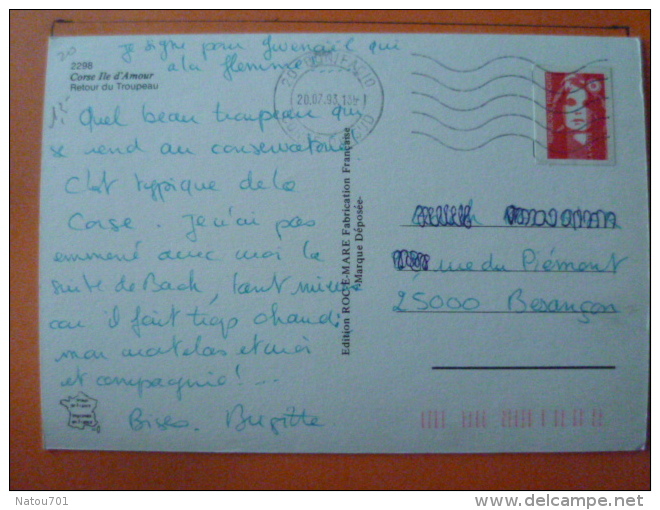 je signe pour Gwenaël qui
a la flemme
2298
Corse Ile d'Amour
Retour du Troupeau
20
20.07.93
Quel beau troupeau qui
se rend au conservatoire
C'est typique de la
Corse. Je n'ai pas
emmené avec moi la
suite de Bach, tant mieux
car il fait trop chaud.
mon matelas et moi
et compagnie! ...
Bises. Brigitte
Edition ROC E-MARE Fabrication Française
-Marque Déposée-
rue du Piémont
25000 Besançon
Natou701
delcampe.net